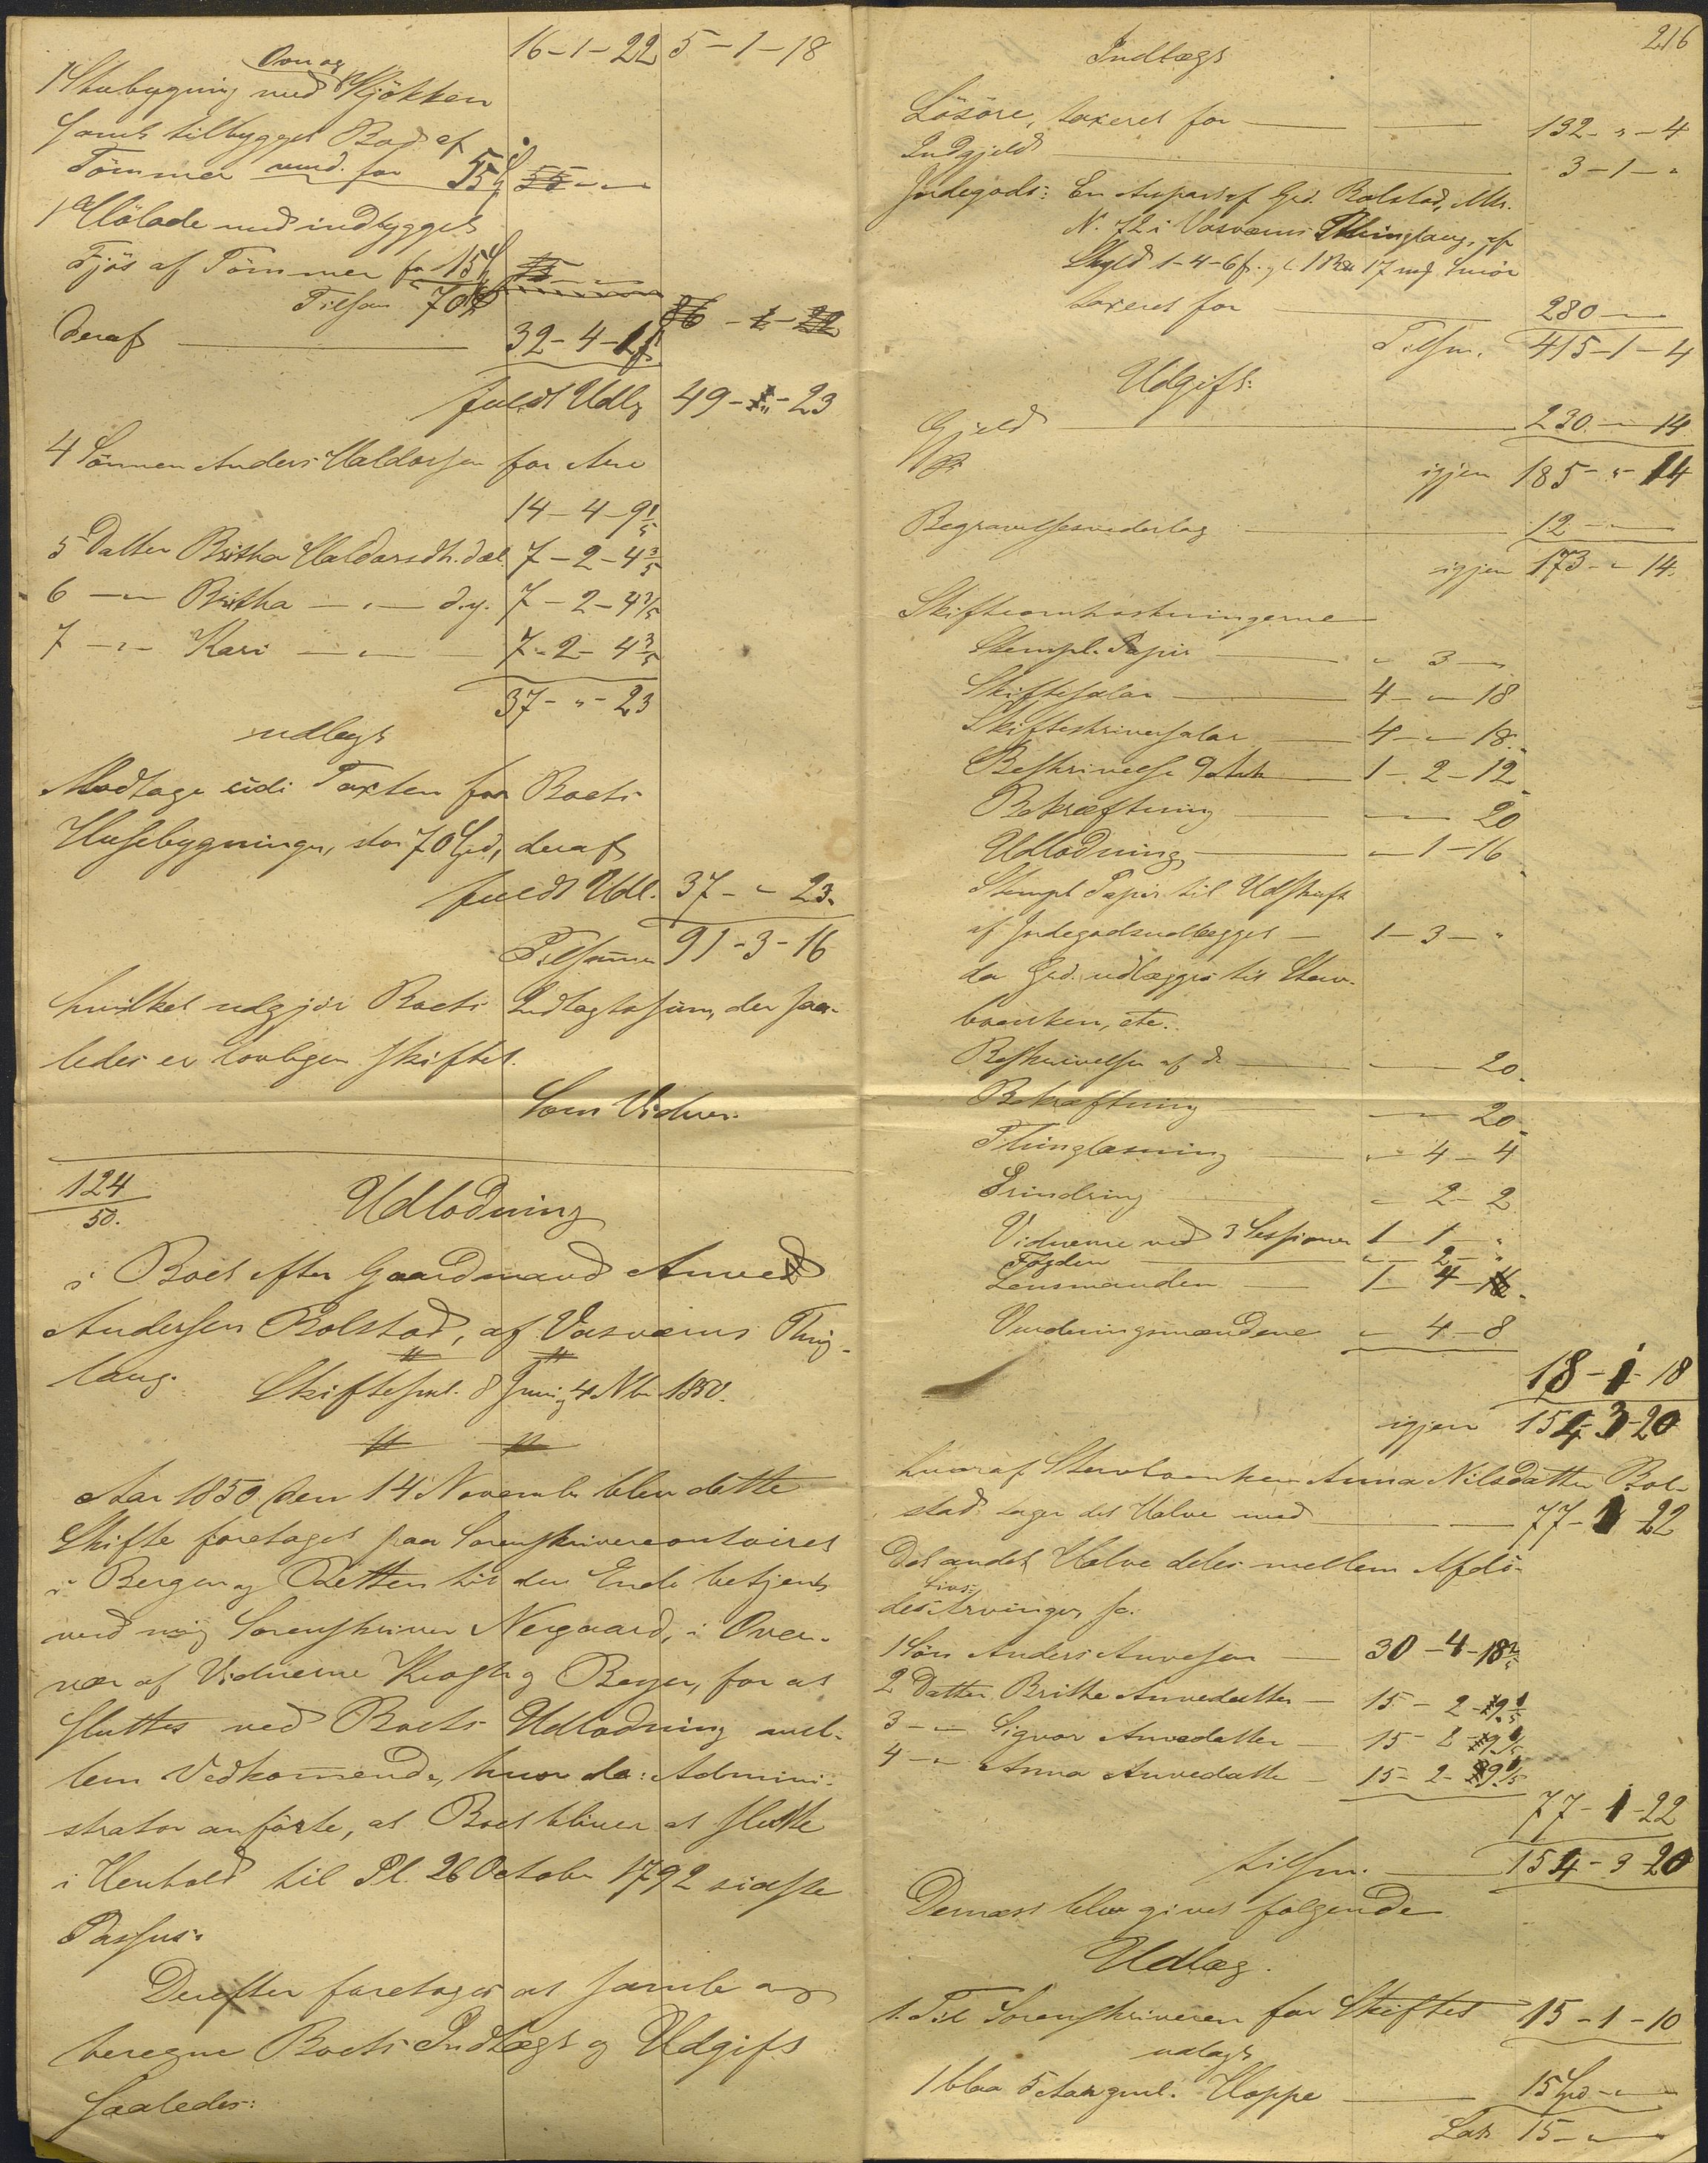 16-1-22 5-1-18
Ovn og
1 Stubygning med Kjökken
samt tilbygget Bod af
Tömmer vurd. for 55
1 Hölade med indbygget
Fjös af Tömmer for 15
Tilsam 70
deraf 32-4-1
fuldt Udlg 49-"-23
4 Sönnen Anders Haldorsen for Arv
14-4-9 1/5
5 Datter Britha Haldorsdtr. d.æl. 7-2-4 3/5
6 -"- Britha -"- d.y. 7-2-4 3/5
7 -"- Kari -"- 7-2-4 3/5
37-"-23
udlagt
Modtage udi Taxten for Boets
Husebygninger, stor 70 Spd, deraf
fuldt Udl. 37-"-23.
Tilsamen 91-3-16
hvilket udgjör Boets Indtægtssum, der saa-
ledes er lovligen skiftet.
Som Vidner.
124/50.
Udlodning
i Boet efter Gaardmand Anved
Andersen Bolstad, af Vasværns Thing-
laug.
Skiftesml. 8 Juni, 4 Nbr 1850.
Aar 1850 den 14 November blev dette
Skifte foretaget paa Sorenskrivercontoiret
i Bergen og Retten til den Ende betjent
ved mig Sorenskriver Nergaard, i Over-
vær af Vidnerne Krogh og Beyer, for at
sluttes ved Boets Udlodning mel-
lem Vedkomende, hvor da: Admini-
strator anförte, at Boet bliver at slutte
i Henhold til Pl. 26 October 1792 sidste
Passus.
Derefter foretoges at samle og
beregne Boets Indtægt og Udgift
saaledes:
216
Indtægt
Lösöre, taxeret for 132-"-4
Indgjeld 3-1-"
Jordegods: En Anpart af Grd. Bolstad, Mtr.
N. 72 i Vasværns Thinglaug, af
Skyld 1-4-6 f. gl. 1 17 mrk Smör
taxeret for 280-"-
Tilsm. 415-1-4
Udgift:
Gjeld 230-"-14
igjen 185-"-14
Begravelsesvederlag 12-"-
igjen 173-"-14.
Skifteomkostningerne
Stempl. Papir "-3-"
Skiftesalar 4-"-18
Skifteskriversalar 4-"-18.
Beskrivelse 9 Ark 1-2-12
Bekræftning "-"-20
Udlodning "-1-16
Stempl. Papir til Udskrift
af Jordegodsudlægget 1-3-"
da Grd. udlægges til Sterv-
boenken, etc.
Beskrivelse af d. "-"-20.
Bekræftning "-"-20
Thinglæsning "-4-4
Erindring "-2-2
Vidnerne ved 3 Sessioner 1-1-"
Fogden "-2-"
Lensmanden 1-4-
Vurderingsmændene "-4-8
18-1-18
igjen 154-3-20
hvoraf Stervboenken Anna Nilsdatter Bol-
stad tager det Halve med 77-1-22
Det andet Halve deles mellem Afdö-
Livs-
des Arvinger, sa.
1 Sön Anders Anvesen 30-4-18 2/5
2 Datter Brithe Anvedatter 15-2-9 1/5
3 -"- Sigvor Anvedatter 15-2-9 1/5
4 -"- Anna Anvedatte 15-2-9 1/5
77-1-22
tilsm. 154-3-20
Dernæst blev givet fölgende
Udlæg.
1. Til Sorenskriveren for Skiftet 15-1-10
udlagt
1 blaa 5 Aar gml. Hoppe 15 Spd-"-
Lat. 15-"-